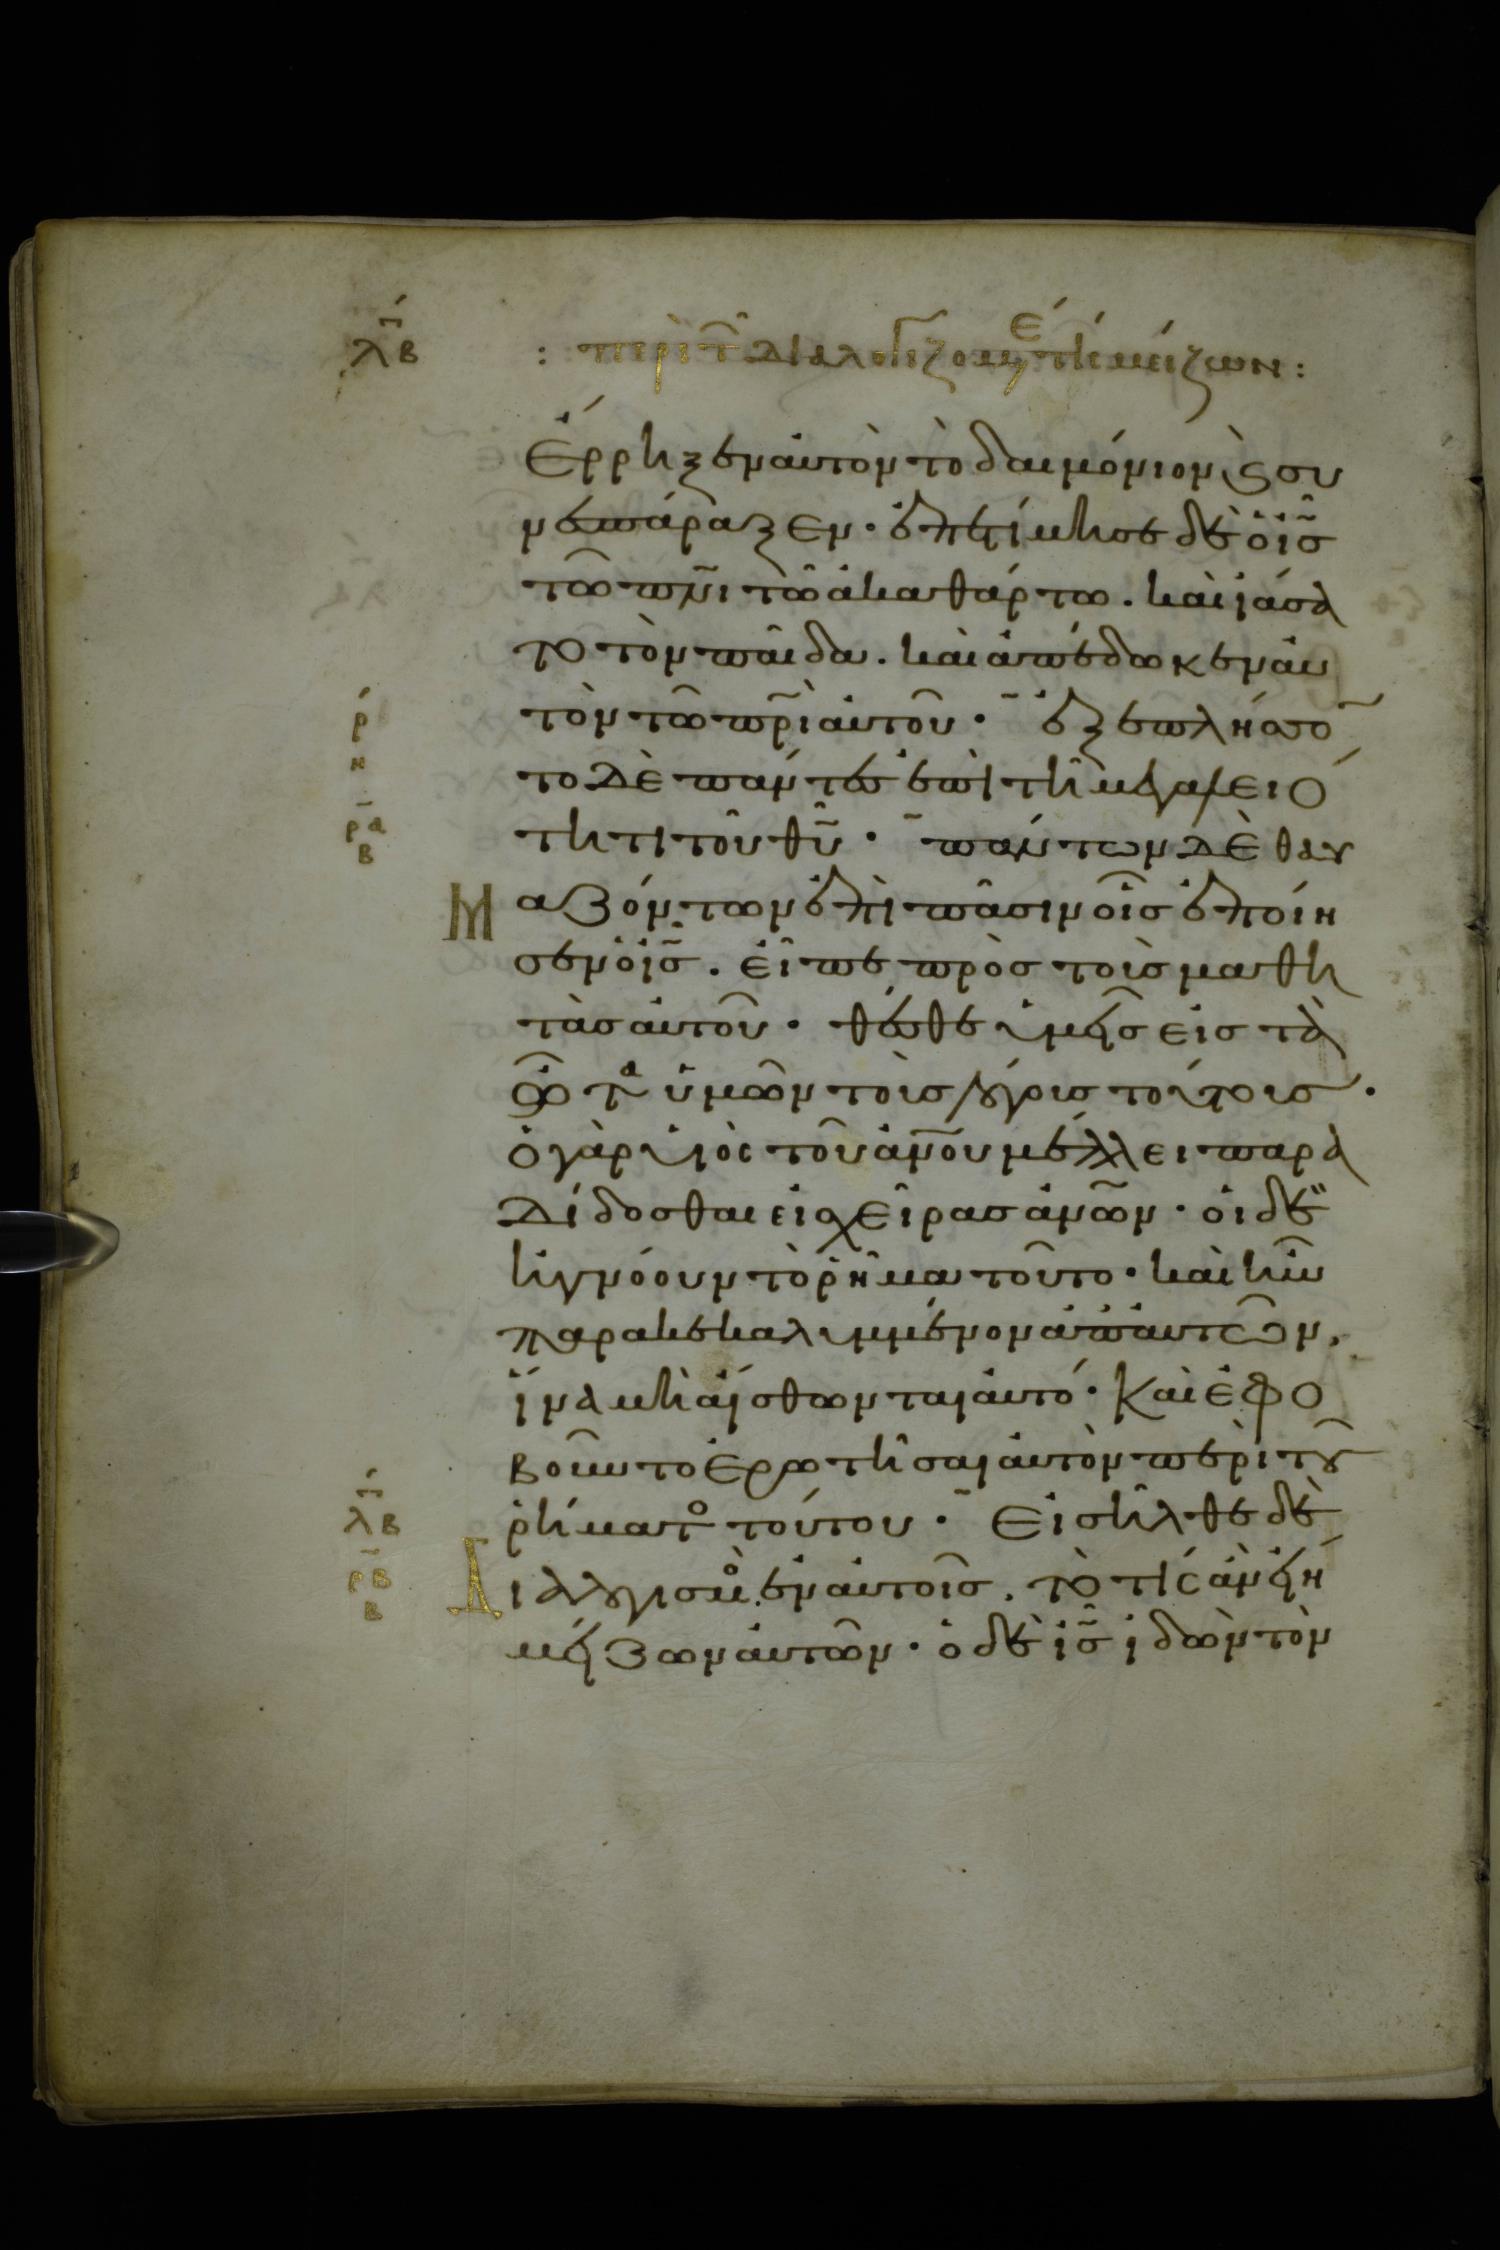 λβ
: περὶ τῶν διαλογιζομέ τίς μείζων :
ἔρρηξεν αὐτὸν τὸ δαιμόνιον ϗ συ
νεσπάραξεν · ἐπετίμησε δὲ ὁ ις̅
τῶ πνι̅ τῶ ἀκαθάρτω · καὶ ἰάσα
το τὸν παῖδα · καὶ ἀπέδωκεν αὐ
τὸν τῶ πρι̅ αὐτοῦ · ἐξεπλήσσο
ρ
η
το δὲ πάντες ἐπὶ τῆ μεγαλειό
τητι τοῦ θυ̅ · πάντων δὲ θαυ
ρα
β
μαζόντων ἐπὶ πᾶσιν οἷς ἐποίη
σεν ὁ ις̅ · εἶπε πρὸς τοὺς μαθη
τὰς αὐτοῦ · θέσθε ὑμεῖς εἰς τὰ
ὦτα ὑμῶν τοὺς λόγους τούτους ·
ὁ γὰρ υἱὸς τοῦ ἀνου̅ μέλλει παρα
δίδοσθαι εἰς χεῖρας ἀνω̅ν · οἱ δὲ
ἠγνόουν τὸ ῥῆμα τοῦτο · καὶ ἦν
παρακεκαλυμμένον ἀπ' αὐτῶν,
ἵνα μὴ αἴσθωνται αὐτό · Καὶ ἐφο
βοῦντο ἐρωτῆσαι αὐτὸν περὶ τοῦ
ῥήματος τούτου · Εἰσῆλθε δὲ
λβ
ρβ
β
Διαλογισμὸς ἐν αὐτοῖς, τὸ τίς ἂν εἴη
μείζων αὐτῶν · ὁ δὲ ις̅ ἰδὼν τὸν